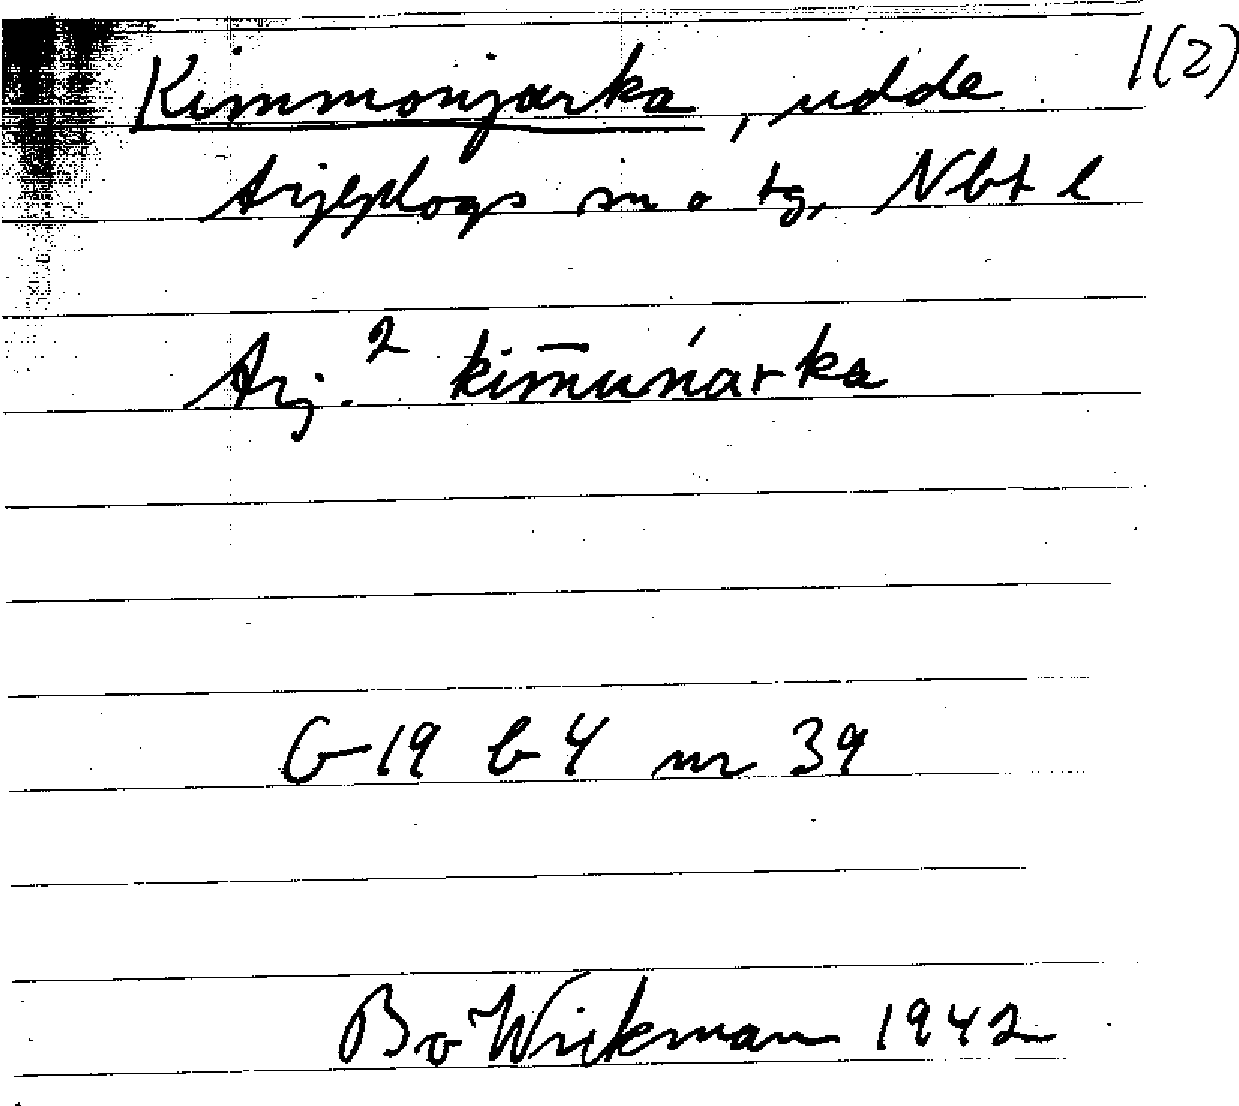 Kimmonjarka, udde 1(2)
Arjeplogs sn o tg, Nbt l
Arj.² kim̄uńarka
G 19 b 4 nr 39
Bo Wickman 1942